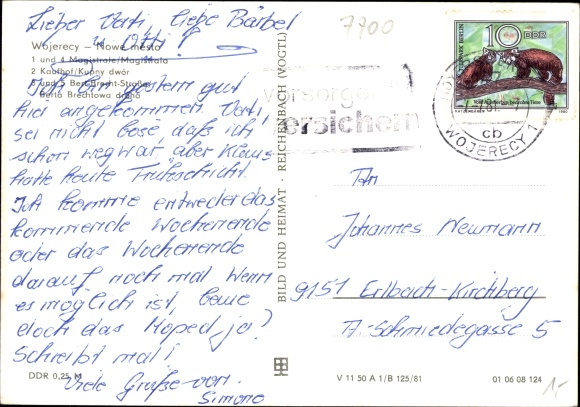 Lieber Vati, liebe Bärbel
u. Otti!
Wojerecy — Nowe město
1 und 4 Magistrale/Magistrala
2 Kaufhof/Kupny dwór
3 und 5 Bert-Brecht-Straße/
Berta Brechtowa dróha
gestern gut
hier angekommen. Vati,
sei nicht böse, daß ich
schon weg war, aber Klaus
hatte heute Frühschicht.
Ich komme entweder das
kommende Wochenende
oder das Wochenende
darauf noch mal. Wenn
es möglich ist, baue
doch das Moped, ja?
Schreibt mal!
Viele Grüße von
Simone
DDR 0,25 M
BILD UND HEIMAT · REICHENBACH (VOGTL)
7700
versorgt
versichern
10 DDR
TIERPARK BERLIN
KATZENBÄREN
1980
cb
WOJERECY 1
An
Johannes Neumann
9151 Erlbach-Kirchberg
A.-Schmiedegasse 5
V 11 50 A 1/B 125/81
01 06 08 124
1,-